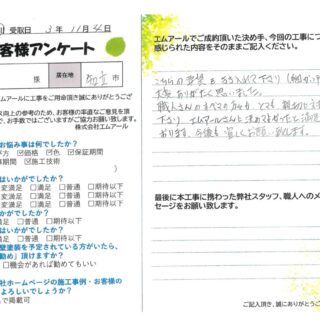 受取日 3年 11月 4日
客様アンケート
様 居在地 知立市
エムアールに工事をご用命頂き誠にありがとうござ
ス向上の参考のため、お客様の率直なご意見を頂
で、お手数ではございますがご協力お願い致します。
株式会社エムアール
お悩み事は何でしたか?
方 ☑価格 ☑色 ☑保証期間
期間 ☑施工技術
はいかがでしたか?
変満足 □満足 □普通 □期待以下
いかがでしたか?
変満足 □満足 □普通 □期待以下
はいかがでしたか?
変満足 □満足 □普通 □期待以下
壁塗装を予定されている方がいたら、
勧め」頂けますか?
□機会があれば勧めてもいい
社ホームページの施工事例・お客様の
よろしいでしょうか?
で掲載可
エムアールでご成約頂いた決め手、今回の工事につ
感じられた内容をそのままご記入ください。
こちらの要望を
職人さん
下さり エムアールさんに決めてよかったと満足
おります。今後も宜しくお願い致します。
最後に本工事に携わった弊社スタッフ、職人へのメ
セージをお願い致します。
ご記入頂き、誠にありがとうござ